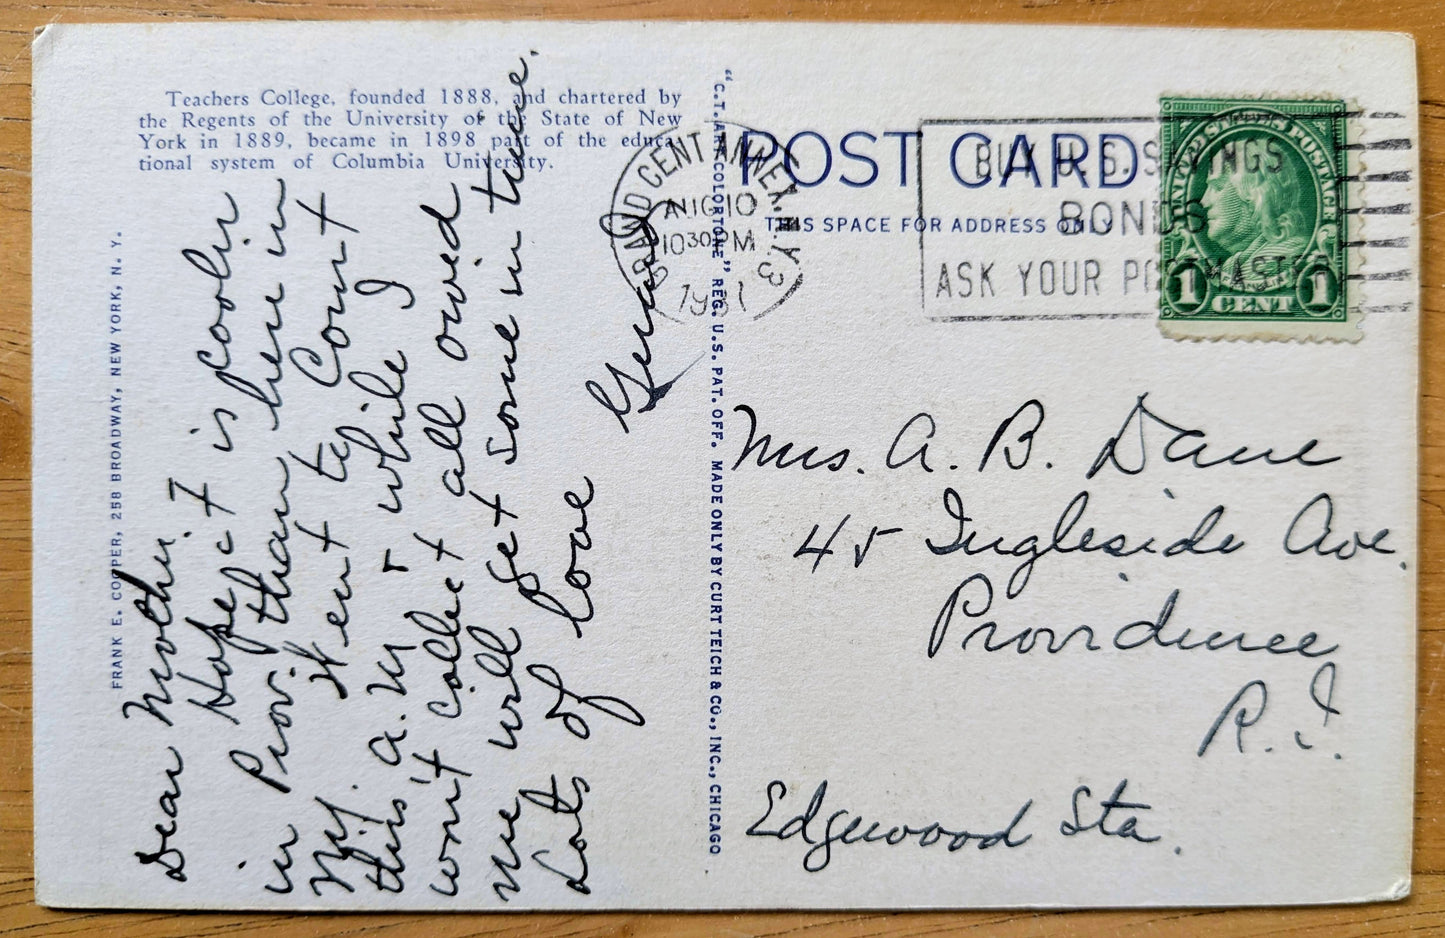 Teachers College, founded 1888, and chartered by
the Regents of the University of the State of New
York in 1889, became in 1898 part of the educa-
tional system of Columbia University.
FRANK E. COOPER, 258 BROADWAY, NEW YORK, N. Y.
Dear Mother.
Hope it is cooler
in Prov. than here in
N.Y. Went to Court
this a.m. & while I
won't collect all owed
me will get some in time.
Lots of love
Gerald
"C.T. ART-COLORTONE" REG. U.S. PAT. OFF. MADE ONLY BY CURT TEICH & CO., INC., CHICAGO
GRAND CENT. ANNEX. N.Y. 3
AUG 10
10 30 PM
1937
POST CARD
THIS SPACE FOR ADDRESS ONLY
BUY U. S. SAVINGS
BONDS
ASK YOUR POSTMASTER
UNITED STATES POSTAGE
1 CENT 1
Mrs. A. B. Dane
45 Ingleside Ave.
Providence
R. I.
Edgewood Sta.